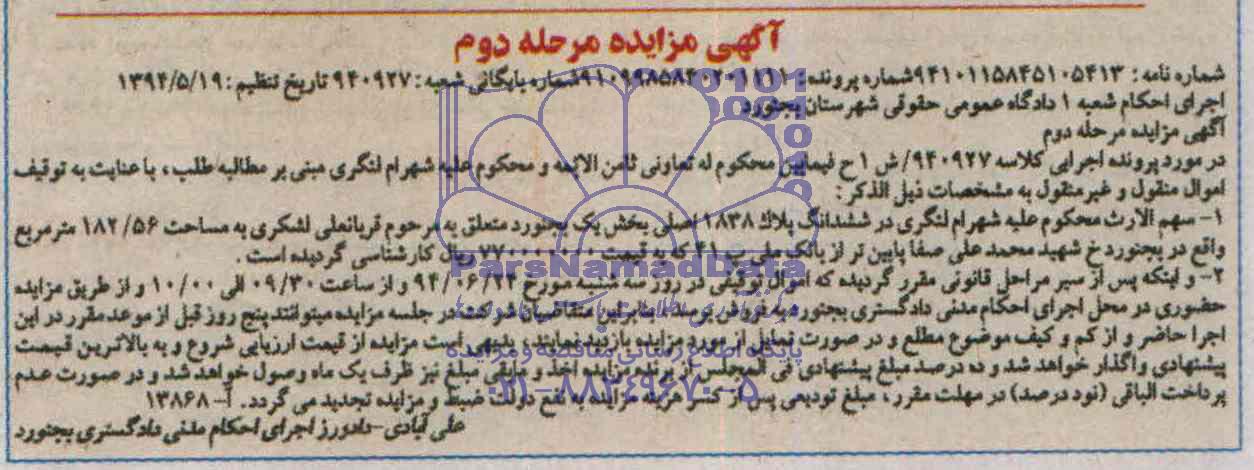 آگهی مزایده مرحله دوم
شماره نامه: ۹۴۱۰۱۱۵۸۴۵۱۰۵۴۱۳شماره پرونده: ۹۱۰۹۹۸۵۸۴۰۲۰۱۱۱۱شماره بایگانی شعبه: ۹۴۰۹۲۷ تاریخ تنظیم: ۱۳۹۴/۵/۱۹
اجرای احکام شعبه ۱ دادگاه عمومی حقوقی شهرستان بجنورد
آگهی مزایده مرحله دوم
در مورد پرونده اجرایی کلاسه ۹۴۰۹۲۷/ش ۱ ح فیمابین محکوم له تعاونی ثامن الائمه و محکوم علیه شهرام لنگری مبنی بر مطالبه طلب، با عنایت به توقیف
اموال منقول و غیرمنقول به مشخصات ذیل الذکر:
۱- سهم الارث محکوم علیه شهرام لنگری در ششدانگ پلاک ۱۸۳۸ اصلی بخش یک بجنورد متعلق به مرحوم قربانعلی لشکری به مساحت ۱۸۲/۵۶ مترمربع
واقع در بجنورد خ شهید محمد علی صفا پایین تر از بانک ملی پ ۴۱ که به قیمت ریال کارشناسی گردیده است.
۲- و اینکه پس از سیر مراحل قانونی مقرر گردیده که اموال توقیفی در روز سه شنبه مورخ ۹۴/۰۶/۲۴ و از ساعت ۰۹/۳۰ الی ۱۰/۰۰ و از طریق مزایده
حضوری در محل اجرای احکام مدنی دادگستری بجنورد به فروش برسد لذا بنابراین متقاضیان شرکت در جلسه مزایده میتوانند پنج روز قبل از موعد مقرر در این
اجرا حاضر و از کم و کیف موضوع مطلع و در صورت تمایل از مورد مزایده بازدید نمایند، بدیهی است مزایده از قیمت ارزیابی شروع و به بالاترین قیمت
پیشنهادی واگذار خواهد شد و ده درصد مبلغ پیشنهادی فی المجلس از برنده مزایده اخذ و مابقی مبلغ نیز ظرف یک ماه وصول خواهد شد و در صورت عدم
پرداخت الباقی (نود درصد) در مهلت مقرر، مبلغ تودیعی پس از کسر هزینه مزایده به نفع دولت ضبط و مزایده تجدید می گردد. آ-۱۳۸۶۸
علی آبادی-دادورز اجرای احکام مدنی دادگستری بجنورد
ParsNamadData
پایگاه اطلاع رسانی مناقصه و مزایده
۰۲۱-۸۸۳۴۹۶۷۰-۵